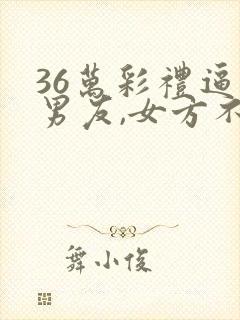 36萬彩禮逼
男友,女方不
舞小俊